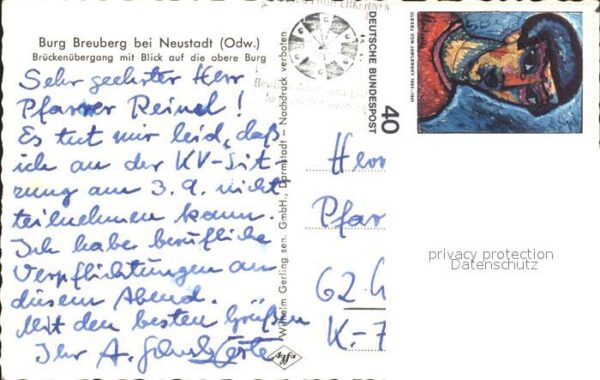 Burg Breuberg bei Neustadt (Odw.)
Brückenübergang mit Blick auf die obere Burg
Sehr geehrter Herr
Pfarrer Reinel!
Es tut mir leid, daß
ich an der KV-Sit-
zung am 3.9. nicht
teilnehmen kann.
Ich habe berufliche
Verpflichtungen an
diesem Abend.
Mit den besten Grüßen
Ihr A.
Wilhelm Gerling sen. GmbH., Darmstadt — Nachdruck verboten
DEUTSCHE BUNDESPOST
40
ALEXEJ VON JAWLENSKY 1864-1941
Herr
Pfar
62
K.-7
privacy protection
Datenschutz